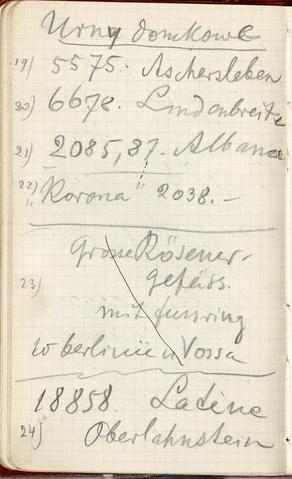 Urny domkowe
19) 5575. Aschersleben
20) 6678. Lindenbreite
21) 2085, 87. Albano
22) "Korona" 2038.-
Grosse Rösener-
gefäss.
23)
mit fussring
w berlinie u Vossa
18858. Ladine
24) Oberlahnstein